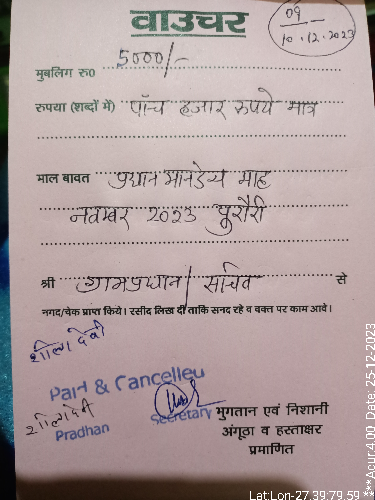 वाउचर
09
10.12.2023
मुबलिग रु0 5000/-
रुपया (शब्दों में) पाँच हजार रुपये मात्र
माल बावत प्रधान मानदेय माह
नवम्बर 2023 पुरौरी
श्री ग्रामप्रधान/सचिव से
नगद/चेक प्राप्त किये। रसीद लिख दी ताकि सनद रहे व वक्त पर काम आवे।
Paid & Cancelled
Pradhan
Secretary
भुगतान एवं निशानी
अंगूठा व हस्ताक्षर
प्रमाणित
Lat:Lon-27.39:79.59
***Acur:4.00 Date: 25-12-2023